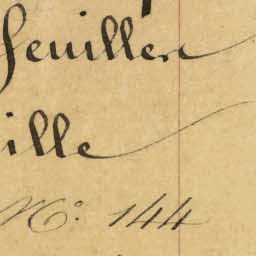 feuillere
ille
N.º 144